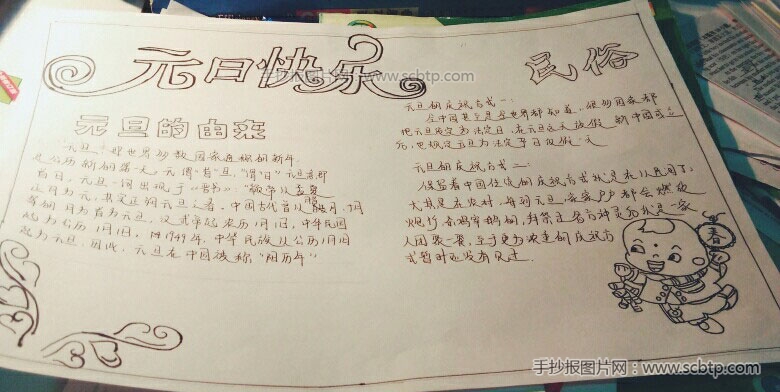 元日快乐
手抄报图片网 www.scbtp.com
民俗
元旦的由来
"元旦"一般世界多数国家通称的新年,
是公历新的第一天。元谓"首",旦谓"日",元旦意即
首日,元旦一词出现于《晋书》:"
正月为元,其实正朔元之春",中国古代曾以腊月,十月
等的月首为元旦,汉武帝起农历1月1日,中华民国
起为公历1月1日,1949年,中华民族以公历1月1日
起为元旦,因此,元旦在中国被称"阳历年"
元旦的庆祝方式一:
在中国甚至是全世界都知道,很多国家都
把元旦规定为法定日,在元旦这天放假,新中国成立
后,也规定元旦为法定节日放假一天
元旦的庆祝方式二:
保留着中国传统的庆祝方式就是不用了,
尤其是在农村,每到元旦,家家户户都会燃放
炮竹,杀鸡宰鹅的,拜祭过各方神灵后就是一家
人团聚一餐,至于更为浓重的庆祝方
式暂时还没有见过.
春
手抄报图片网:www.scbtp.com